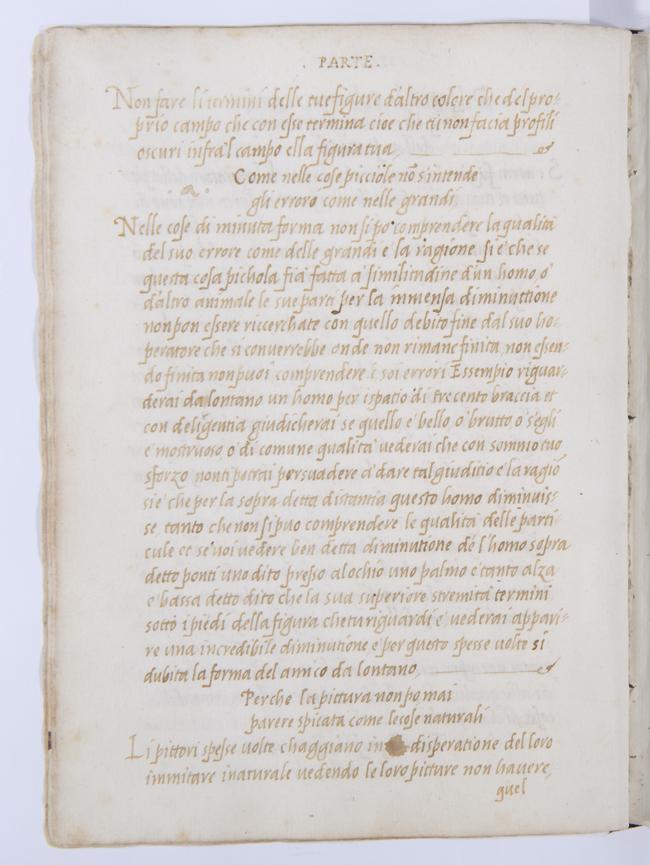 . PARTE .
Non fare li termini delle tue figure d'altro colore che del pro-
prio campo che con esse termina cioe che tu non facia profili
oscuri infra'l campo e lla figura tua
Come nelle cose picciole nõ s'intende
gli errorò come nelle grandi,
Nelle cose di minuta forma non si po comprendere la qualità
del suo errore come delle grandi e la ragione si è che se
questa cosa pichola fia fatta a' similitudine d'un homo, o'
d'altro animale le sue parti per la immensa diminuttione
non pon essere ricerchate con quello debito fine dal suo ho-
peratore che si converrebbe onde non rimane finita, non essen-
do finita non puoi comprendere i soi errori Essempio riguar-
derai da lontano un homo per ispatio di trecento braccia et
con deligentia giudicherai se quello è bello, o' brutto o' s'egli
e' mostruoso, o' di comune qualita' vederai che con sommo tuo
sforzo non ti potrai persuadere a' dare tal giuditio e la ragiõ
si e' che per la sopra detta distantia questo homo diminuis-
se tanto che non si puo comprendere le qualita delle parti-
cule et se voi vedere ben detta diminutione de l'homo sopra
detto ponti uno dito presso a lochio uno palmo e tanto alza
e bassa detto dito che la sua superiore stremita termini
sotto i piedi della figura che tu riguardi e' vederai appari-
re una incredibile diminutione e per questo spesse volte si
dubita la forma del amico da lontano,
Perche la pittura non po mai
parere spicata come le cose naturali
Li pittori spesse volte chaggiano in disperatione del loro
immitare i naturale vedendo le loro picture non havere,
quel